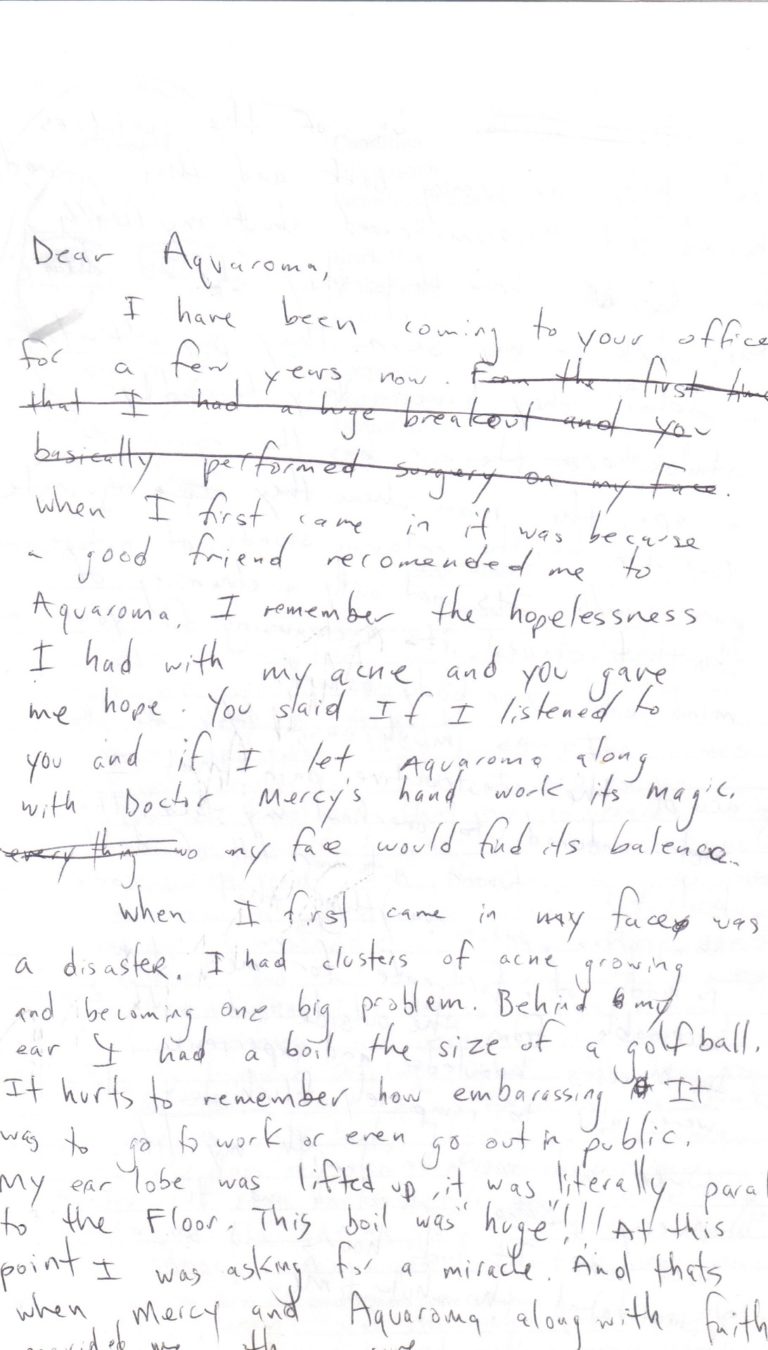 Dear Aquaroma,
I have been coming to your office
for a few years now. From the first time
that I had a huge breakout and you
basically performed surgery on my face.
when I first came in it was because
a good friend recomended me to
Aquaroma. I remember the hopelessness
I had with my acne and you gave
me hope. You said If I listened to
you and if I let Aquaroma along
with Doctor Mercy's hand work its magic.
every thing my face would find its balence.
when I first came in my face was
a disaster. I had clusters of acne growing
and becoming one big problem. Behind my
ear I had a boil the size of a golfball.
It hurts to remember how embarassing It
was to go to work or even go out in public.
My ear lobe was lifted up, it was literally paral
to the Floor. This boil was "huge"!!! At this
point I was asking for a miracle. And thats
when Mercy and Aquaroma along with faith